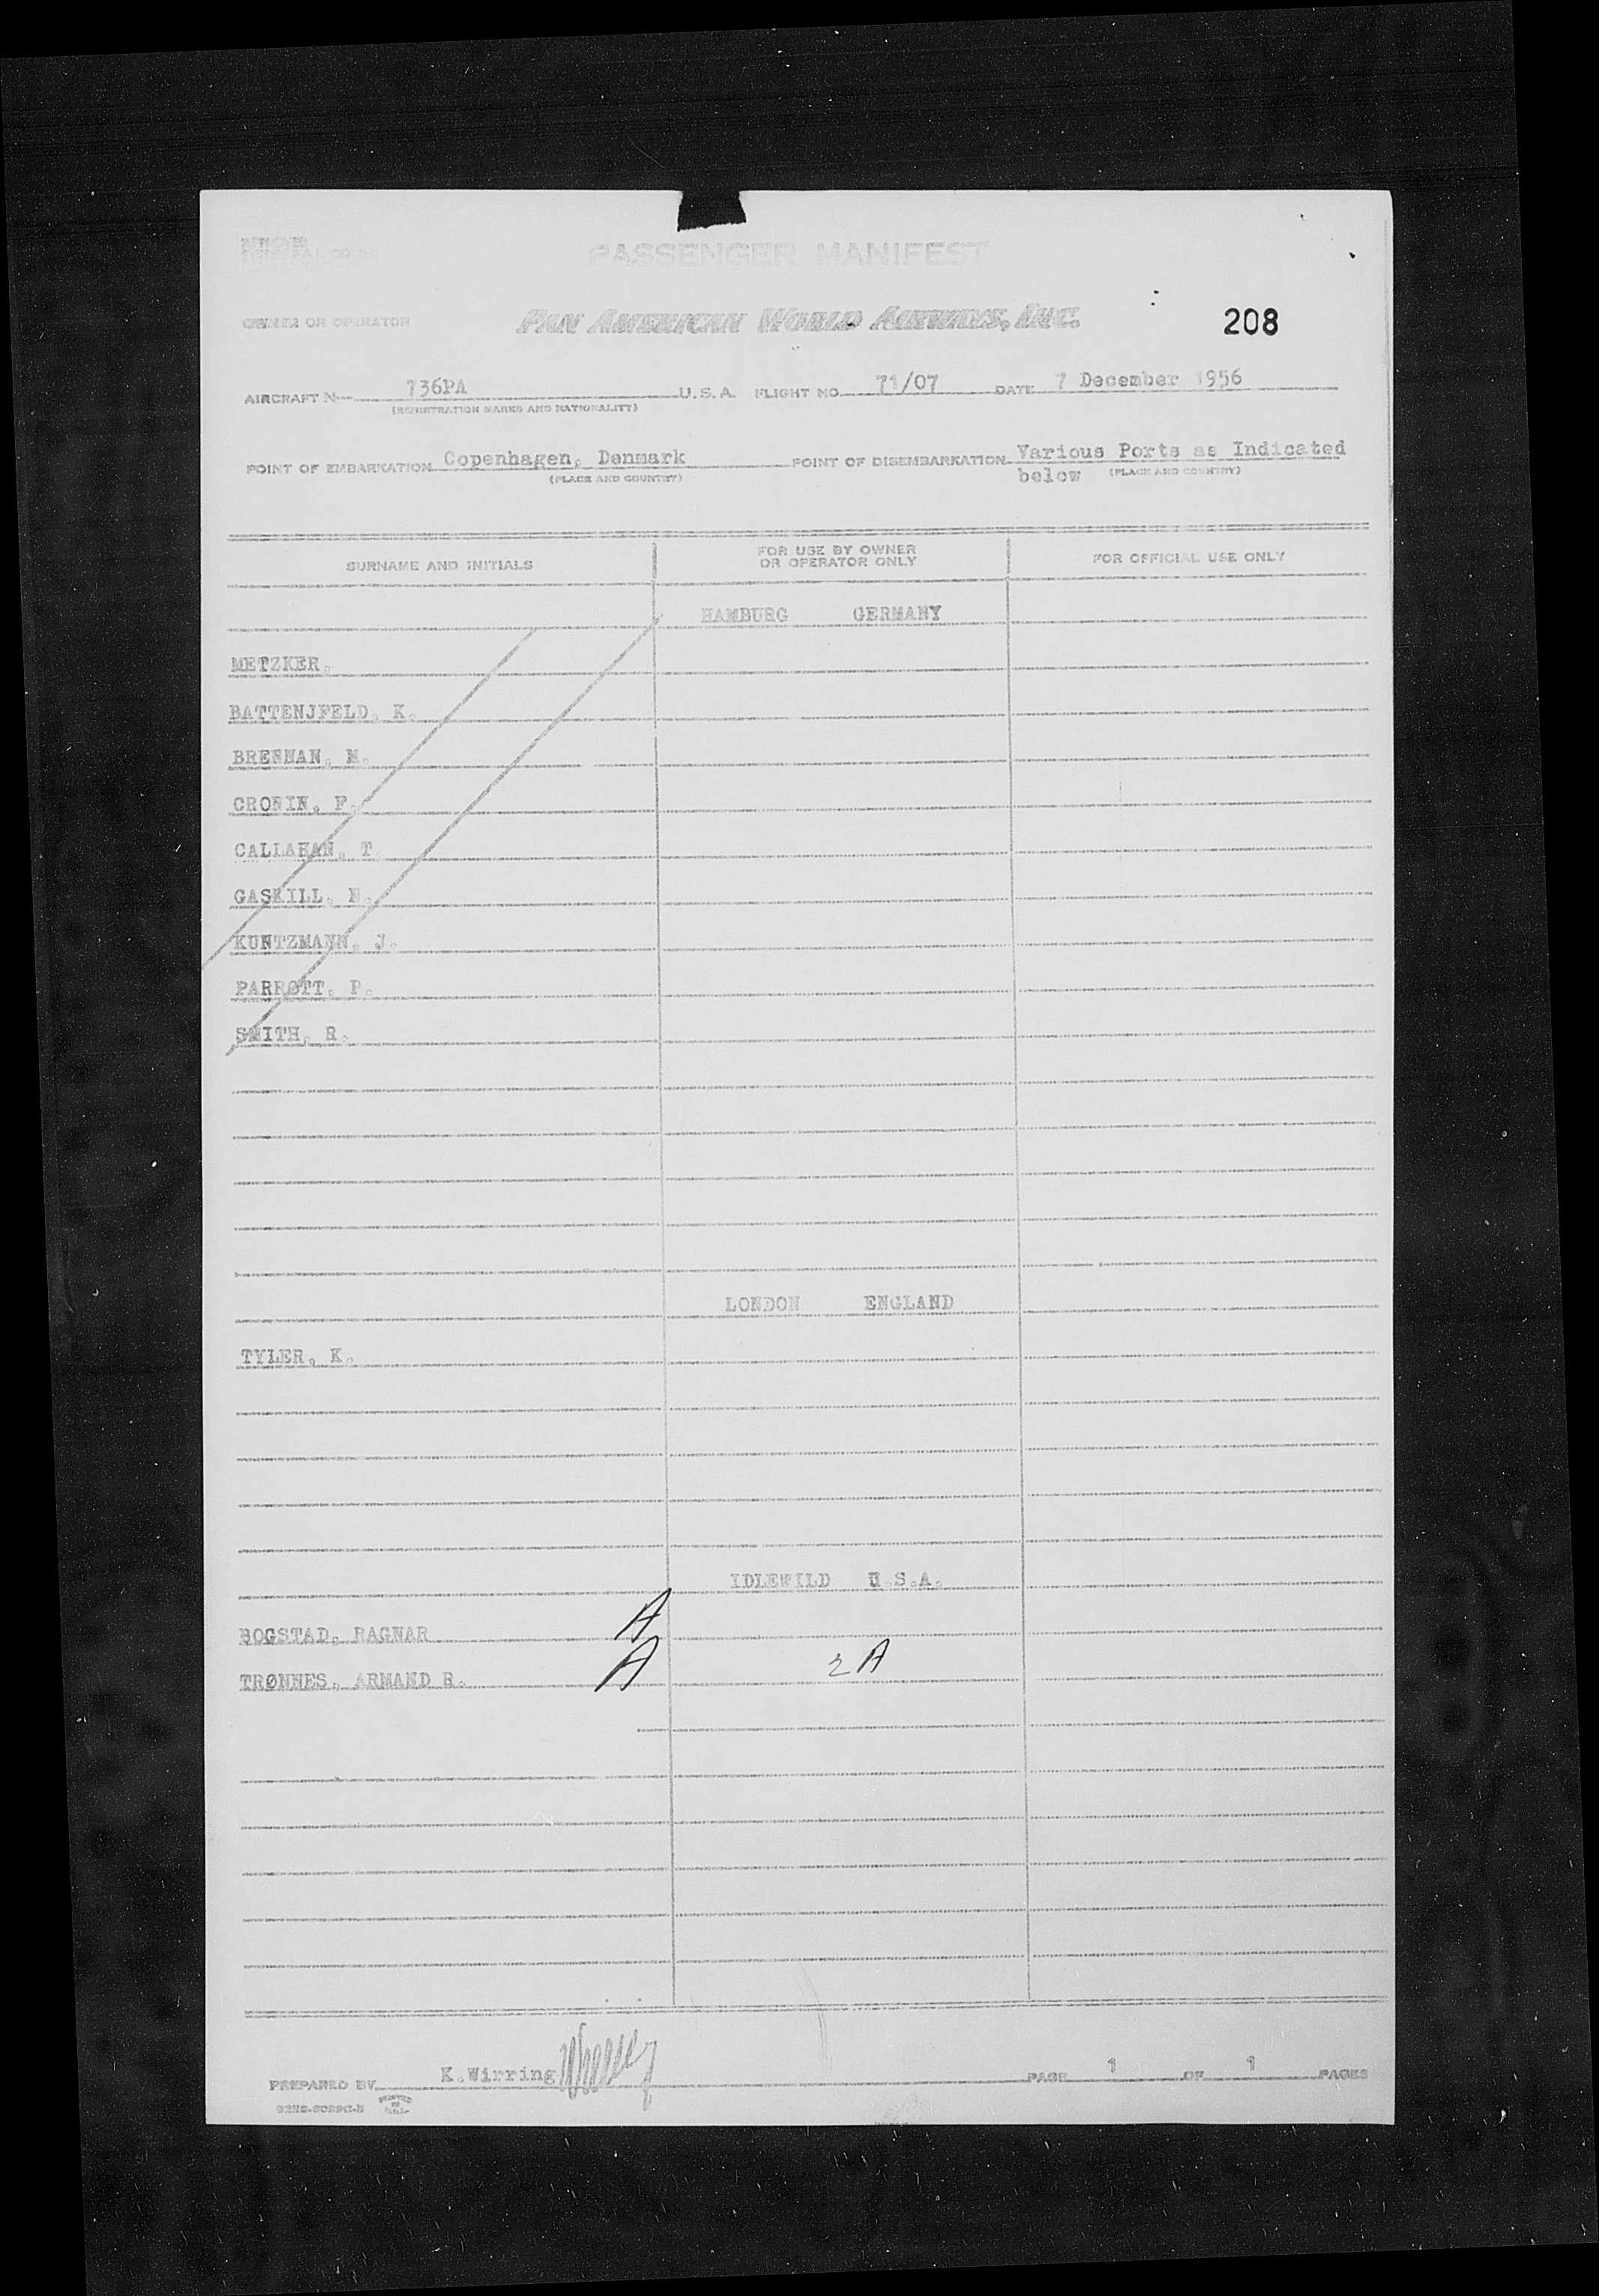 APPROVED
PASSENGER MANIFEST
OWNER OR OPERATOR PAN AMERICAN WORLD AIRWAYS, INC. 208
AIRCRAFT N 736PA U.S.A. FLIGHT NO. 71/07 DATE 7 December 1956
(REGISTRATION MARKS AND NATIONALITY)
POINT OF EMBARKATION Copenhagen, Denmark POINT OF DISEMBARKATION Various Ports as Indicated
(PLACE AND COUNTRY) below (PLACE AND COUNTRY)
SURNAME AND INITIALS FOR USE BY OWNER OR OPERATOR ONLY FOR OFFICIAL USE ONLY
HAMBURG GERMANY
METZKER.
BATTENJFELD. K.
BRENNAN. M.
CRONIN, F.
CALLAHAN, T.
GASKILL. N.
KUNTZMANN, J.
PARROTT, P.
SMITH, R.
LONDON ENGLAND
TYLER, K.
IDLEWILD U.S.A.
BOGSTAD, RAGNAR A
TRØNNES, ARMAND R. A 2A
PREPARED BY K.Wirring PAGE 1 OF 1 PAGES